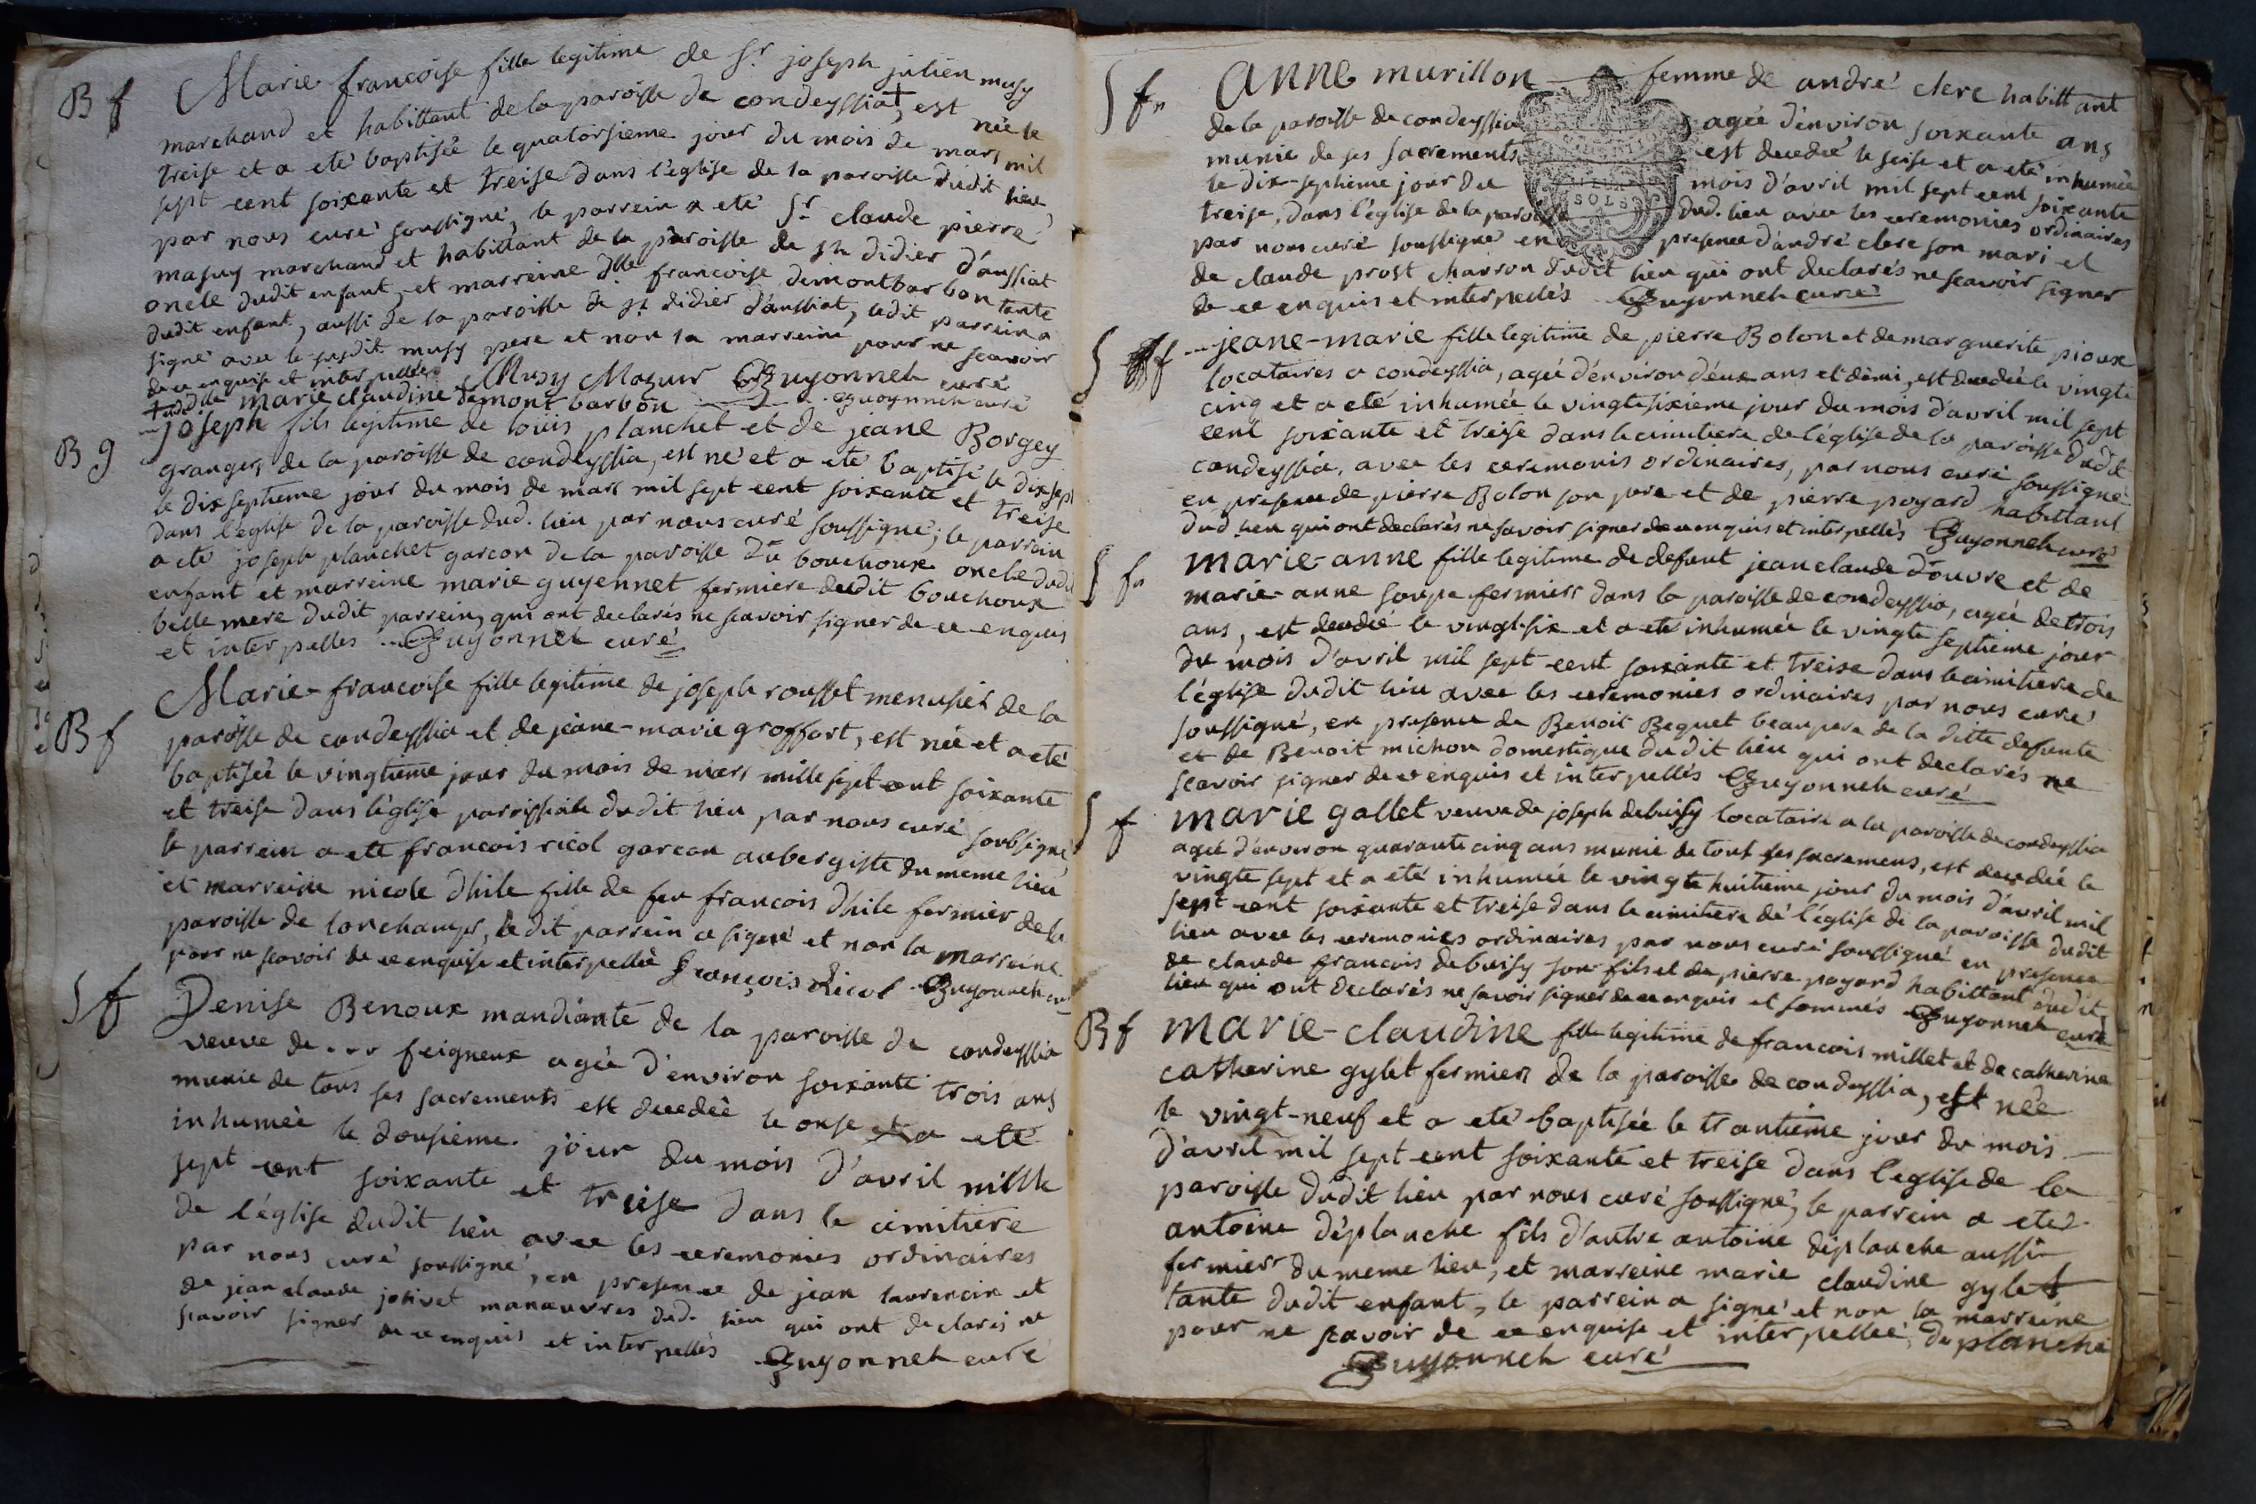 B f
Marie francoise fille legitime de Sr. joseph julien musy
marchand et habittant de la paroisse de condeyssiat, + est née le
treise et a eté baptisée le quatorsieme jour du mois de mars mil
sept cent soixante et treise dans l'église de la paroisse dudit lieu
par nous curé soussigné, le parrein a eté Sr. claude pierre
masuy marchand et habittant de la paroisse de st didier d'aussiat
oncle dudit enfant, et marreine dlle francoise demontbarbon tante
dudit enfant, aussi de la paroisse de st didier d'aussiat, ledit parrein a
signé avec le susdit musy pere et non la marreine pour ne scavoir
de ce enquise et interpellée
Musy Mazuir Guyonneh curé
+ et de dlle marie claudine demont barbon Guyonneh curé
B g
joseph fils legitime de louis planchet et de jeane Borgey
grangers de la paroisse de condeyssia, est né et a eté baptisé le dix sept
le dix septieme jour du mois de mars mil sept cent soixante et treise
dans l'eglise de la paroisse dud. lieu par nous curé soussigné; le parrein
a eté joseph planchet garcon de la paroisse du bouchoux oncle dudit
enfant et marreine marie guyennet fermiere dudit bouchoux
belle mere dudit parrein, qui ont declarés ne scavoir signer de ce enquis
et interpellés Guyonneh curé
B f
Marie-francoise fille legitime de joseph rousset menusier de la
paroisse de condeyssia et de jeane-marie groffort, est née et a eté
baptisée le vingtieme jour du mois de mars mille sept cent soixante
et treise dans l'église parroissiale dudit lieu par nous curé soubsigné
le parrein a eté francois ricol garcon aubergiste du meme lieu
et marreine nicole dhile fille de feu francois dhile fermier de la
paroisse de lonchamps, le dit parrein a signé et non la marreine
pour ne scavoir de ce enquise et interpellée françois Ricol Guyonneh curé
S f
Denise Benoux mandiante de la paroisse de condeyssia
veuve de ... feigneux agée d'environ soixante trois ans
munie de tous ses sacrements est decedée le onse et a eté
inhumée le dousieme jour du mois d'avril mille
sept cent soixante et treise dans le cimitiere
de l'église dudit lieu avec les ceremonies ordinaires
par nous curé soussigné, en presence de jean laurencin et
de jean claude jolivet manœuvres dud. lieu qui ont declarés ne
scavoir signer de ce enquis et interpellés Guyonneh curé
S f
Anne murillon femme de andré clerc habittant
de la paroisse de condeyssia agée d'environ soixante ans
munie de ses sacrements est decedée le seise et a eté inhumée
le dix-septieme jour du mois d'avril mil sept cent soixante
treise, dans l'église de la paroisse dud. lieu avec les ceremonies ordinaires
par nous curé soussigné en presence d'andré clerc son mari et
de claude prost charron dudit lieu qui ont declarés ne scavoir signer
de ce enquis et interpellés Guyonneh curé
SOLS
S f
jeane-marie fille legitime de pierre Bolon et de marguerite pioux
locataires a condeyssia, agée d'environ deux ans et demi, est decedée le vingt
cinq et a eté inhumée le vingtsixieme jour du mois d'avril mil sept
cent soixante et treise dans le cimitiere de l'église de la paroisse dudit
condeyssia, avec les ceremonies ordinaires, par nous curé soussigné
en presence de pierre Bolon son pere et de pierre poyard habittant
dud. lieu qui ont declarés ne savoir signer de ce enquis et interpellés Guyonneh curé
S f
marie-anne fille legitime de defunt jean claude d'ouvre et de
marie-anne soupe fermiers dans la paroisse de condeyssia, agée de trois
ans, est decedée le vingt-six et a eté inhumée le vingte septieme jour
du mois d'avril mil sept cent soixante et treise dans le cimitiere de
l'église dudit lieu avec les ceremonies ordinaires par nous curé
soussigné, en presence de Benoit Bequet beaupere de la ditte defunte
et de Benoit michon domestique dudit lieu qui ont declarés ne
scavoir signer de ce enquis et interpellés Guyonneh curé
S f
marie gallet veuve de joseph debuisy locataire a la paroisse de condeyssia
agée d'environ quarante cinq ans munie de tout ses sacremens, est decedée le
vingte sept et a eté inhumée le vingte huitieme jour du mois d'avril mil
sept cent soixante et treise dans le cimitiere de l'église de la paroisse dudit
lieu avec les ceremonies ordinaires par nous curé soussigné en presence
de claude francois debuisy son fils et de pierre poyard habittant dudit
lieu qui ont declarés ne savoir signer de ce enquis et sommés Guyonneh curé
B f
marie-claudine fille legitime de francois millet et de catherine
catherine gylet fermiers de la paroisse de condeyssia, est née
le vingt-neuf et a eté baptisée le trantieme jour du mois
d'avril mil sept cent soixante et treise dans l'eglise de la
paroisse dudit lieu par nous curé soussigné, le parrein a eté
antoine déplanche fils d'autre antoine déplanche aussi
fermier du meme lieu, et marreine marie claudine gylet
tante dudit enfant, le parrein a signé et non la marreine
pour ne scavoir de ce enquise et interpellée, deplanche
Guyonneh curé